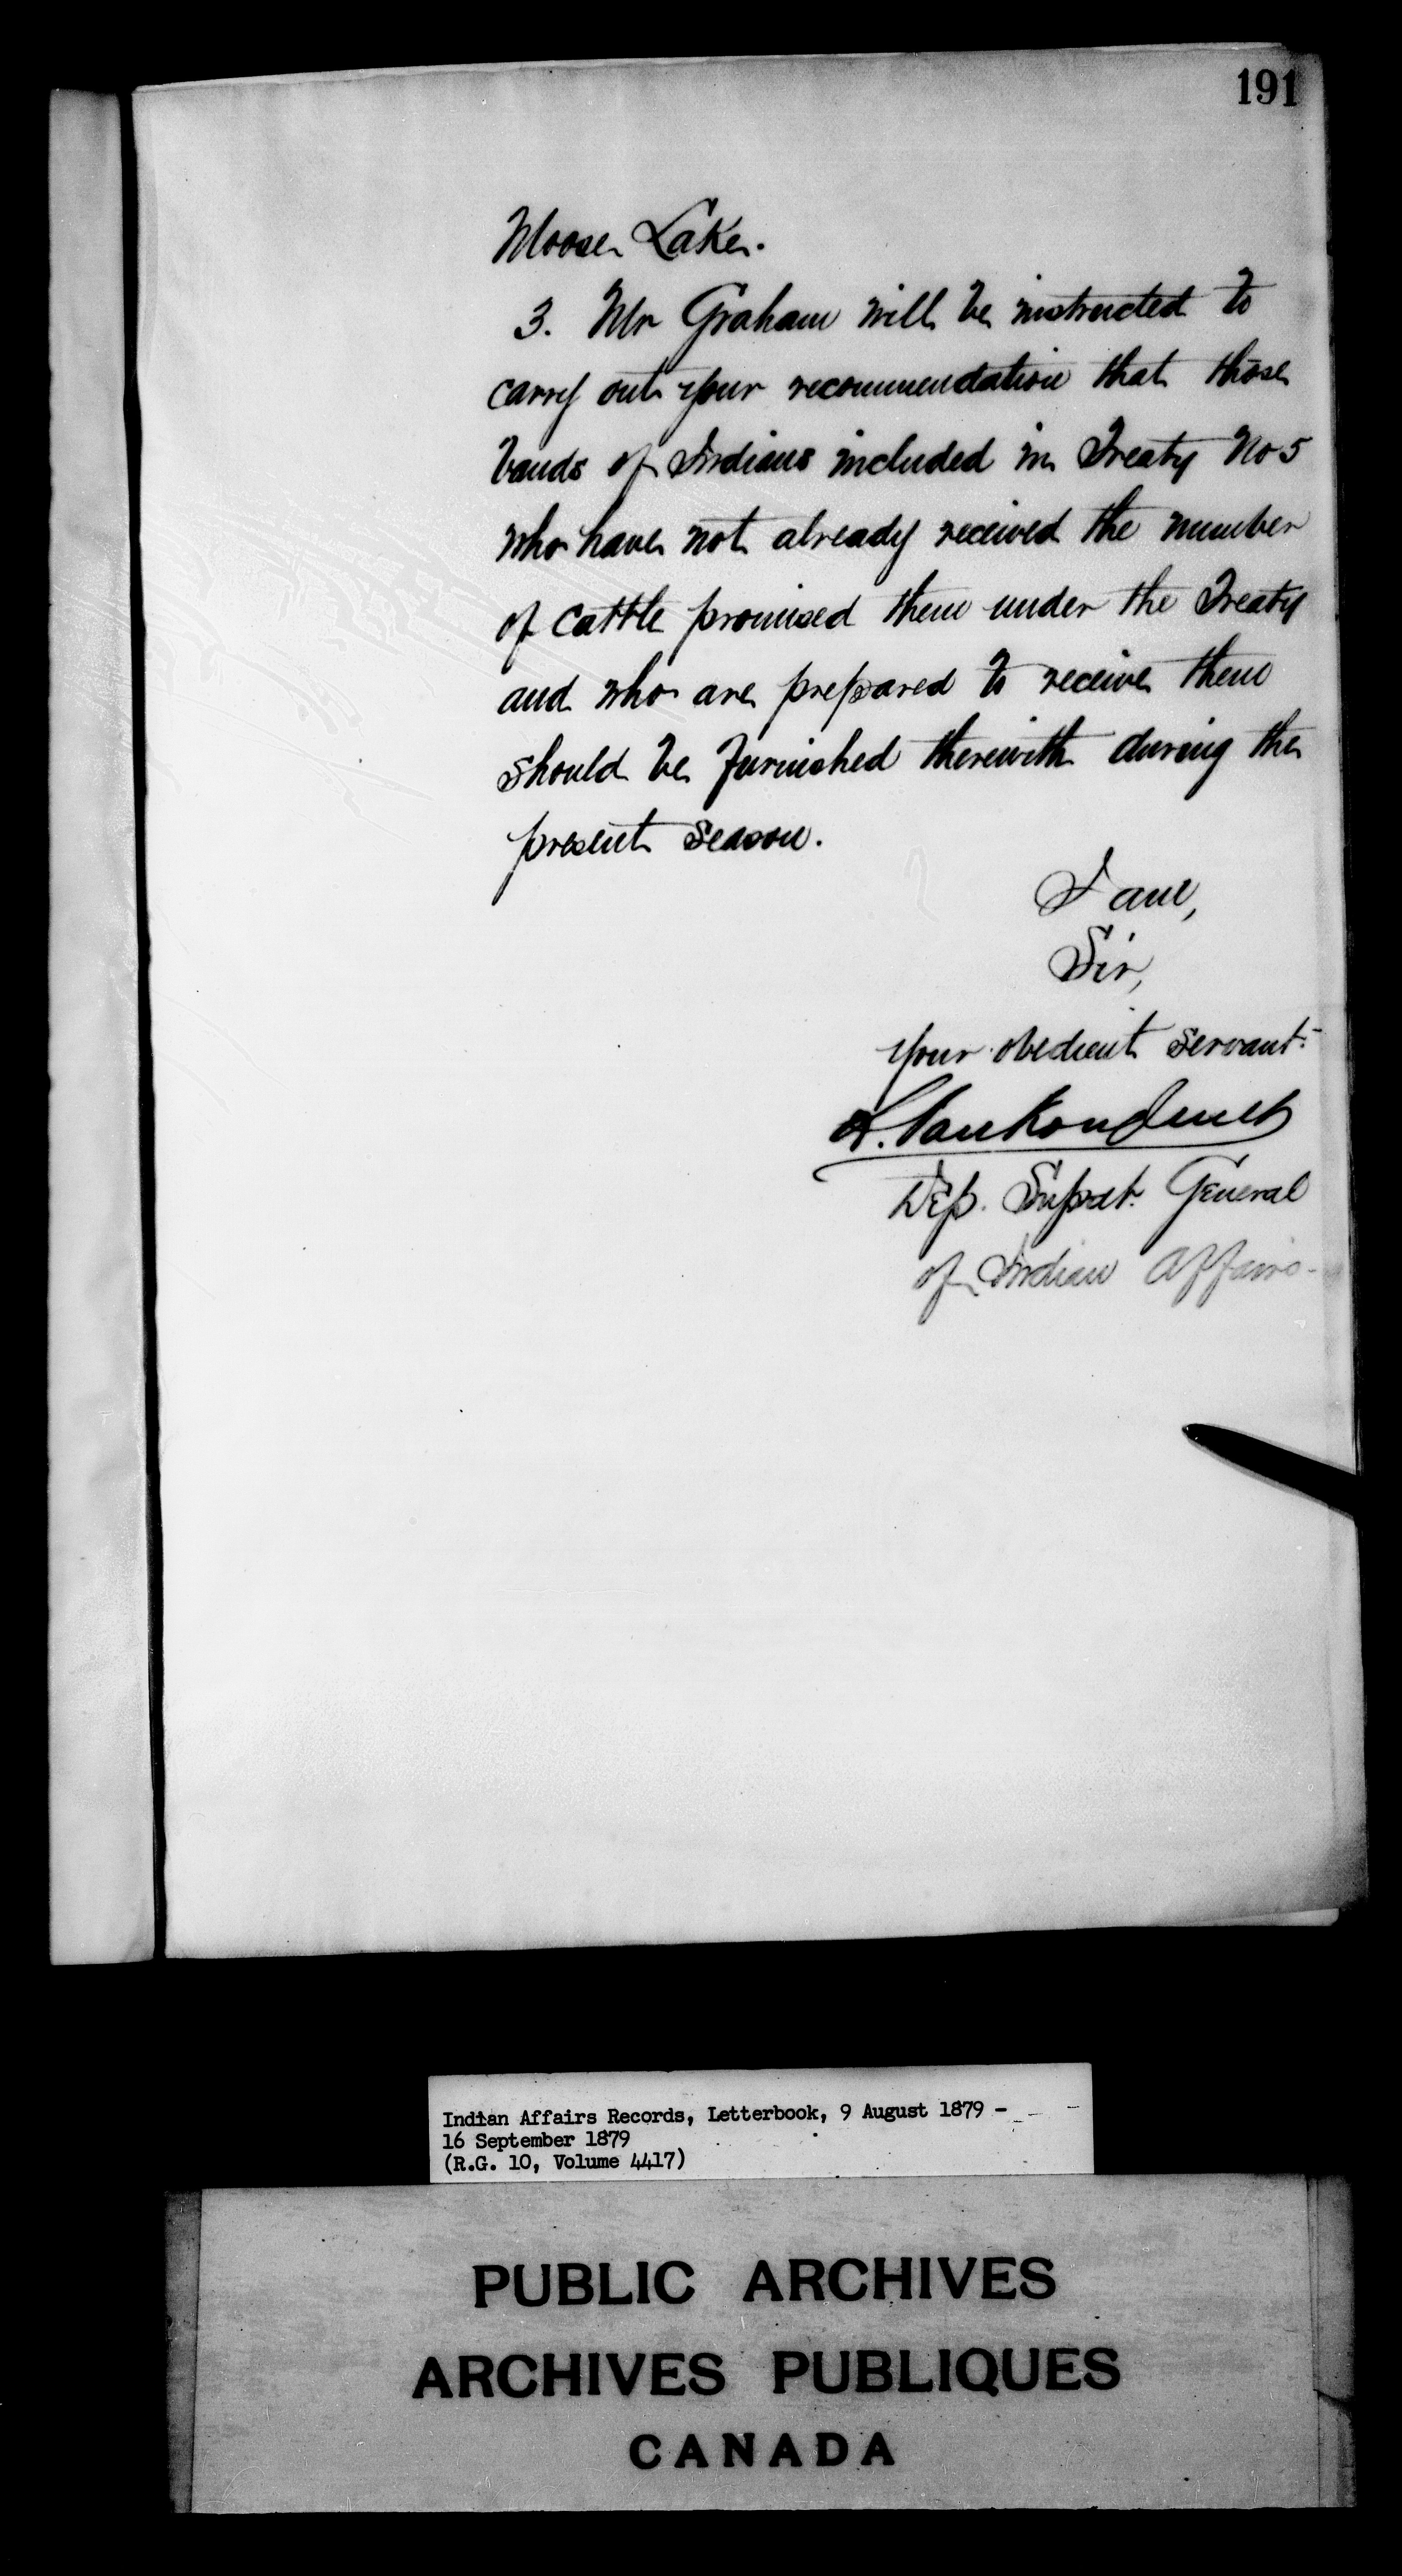 191
Moose Lake.
3. Mr Graham will be instructed to
carry out your recommendation that those
bands of Indians included in Treaty No 5
who have not already received the number
of cattle promised them under the Treaty
and who are prepared to receive them
should be furnished therewith during the
present season.
I am,
Sir,
Your obedient servant.
L. Vankoughnet
Dep. Supdt. General
of Indian Affairs.
Indian Affairs Records, Letterbook, 9 August 1879 -
16 September 1879
(R.G. 10, Volume 4417)
PUBLIC ARCHIVES
ARCHIVES PUBLIQUES
CANADA